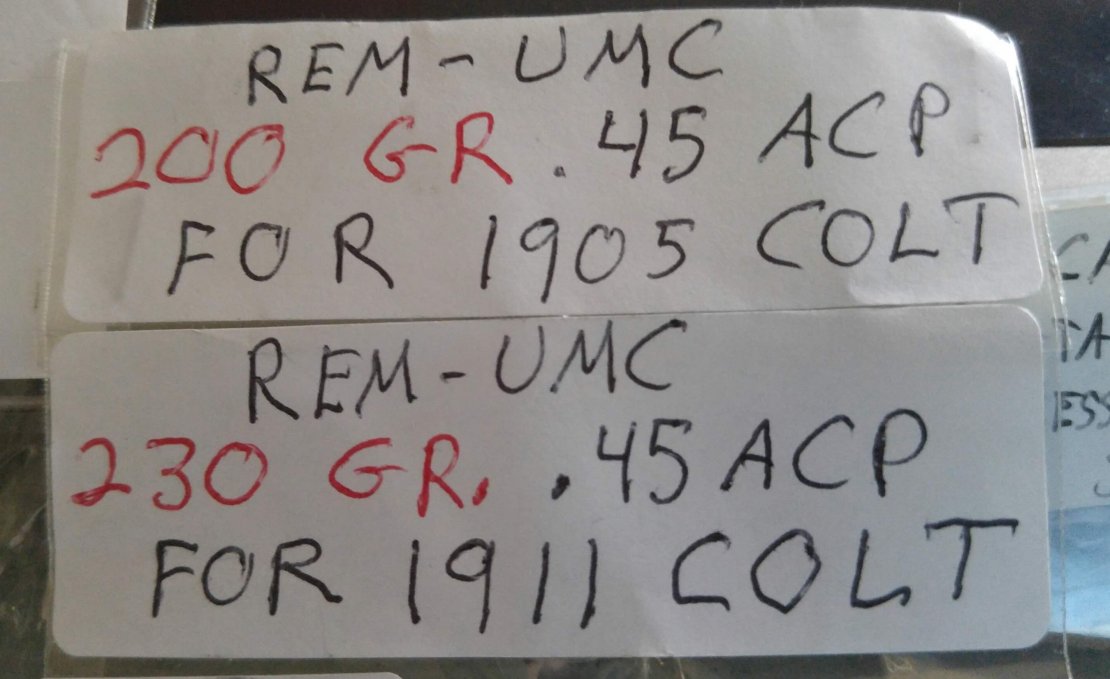 REM-UMC
200 GR .45 ACP
FOR 1905 COLT
REM-UMC
230 GR. .45 ACP
FOR 1911 COLT